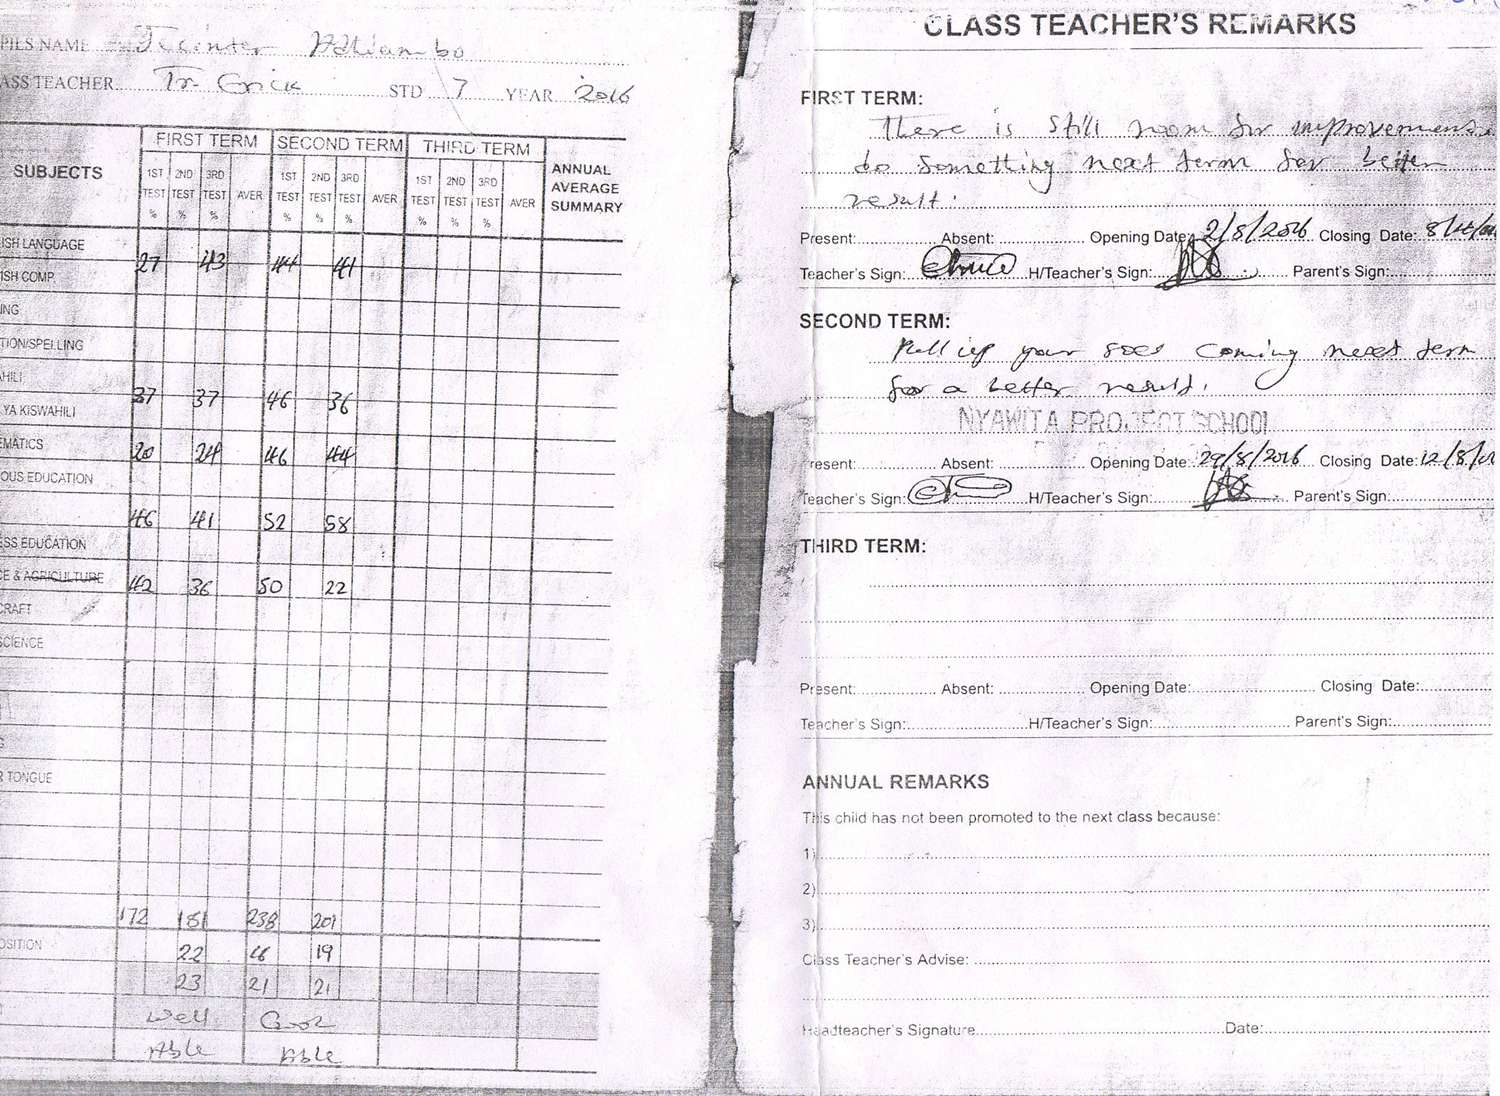 PILS NAME Adhiambo
ASS TEACHER Tr. Erick STD 7 YEAR 2016
SUBJECTS FIRST TERM SECOND TERM THIRD TERM ANNUAL AVERAGE SUMMARY
1ST TEST % 2ND TEST % 3RD TEST % AVER 1ST TEST % 2ND TEST % 3RD TEST % AVER 1ST TEST % 2ND TEST % 3RD TEST % AVER
ISH LANGUAGE
27 43 44 41
ISH COMP.
ING
TION/SPELLING
AHILI
37 37 46 36
YA KISWAHILI
EMATICS
20 24 46 44
OUS EDUCATION
46 41 52 58
ESS EDUCATION
CE & AGRICULTURE
42 36 50 22
CRAFT
SCIENCE
G
R TONGUE
172 181 238 201
OSITION 22 19
23 21 21
Well Good
Able Able
CLASS TEACHER'S REMARKS
FIRST TERM:
There is still room for improvement.
do something next term for better
result.
Present: Absent: Opening Date: 2/5/2016 Closing Date:
Teacher's Sign: H/Teacher's Sign: Parent's Sign:
SECOND TERM:
Pull up your socs coming next term
for a better result.
NYAWITA PROJECT SCHOOL
Present: Absent: Opening Date: 29/8/2016 Closing Date: 12/8/
Teacher's Sign: H/Teacher's Sign: Parent's Sign:
THIRD TERM:
Present: Absent: Opening Date: Closing Date:
Teacher's Sign: H/Teacher's Sign: Parent's Sign:
ANNUAL REMARKS
This child has not been promoted to the next class because:
1)
2)
3)
Class Teacher's Advise:
Headteacher's Signature Date: